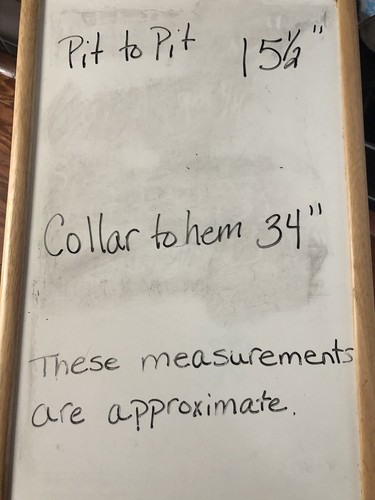 Pit to Pit 15½"
Collar to hem 34"
These measurements
are approximate.